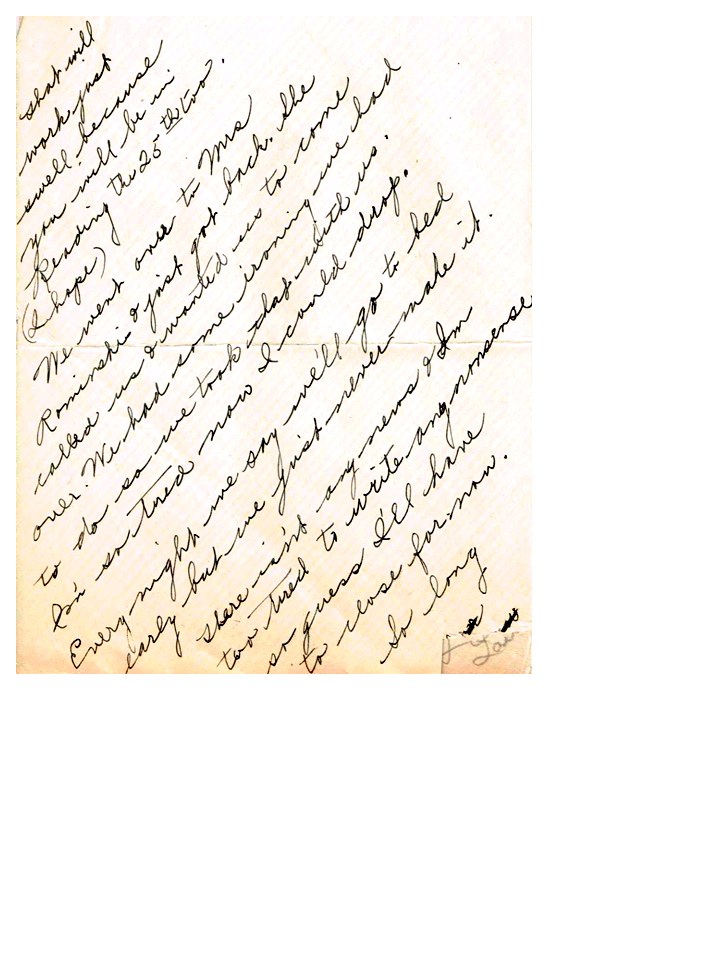 that will
work just
swell because
you will be in
Reading the 25th too.
(I hope)
We went over to Mrs
Rominski & just got back. She
called us & wanted us to come
over. We had some ironing we had
to do so we took that with us.
I'm so tired now I could drop.
Every night we say we'll go to bed
early but we just never make it.
There isn't any news & I'm
too tired to write any nonsense
so guess I'll have
to close for now.
So long